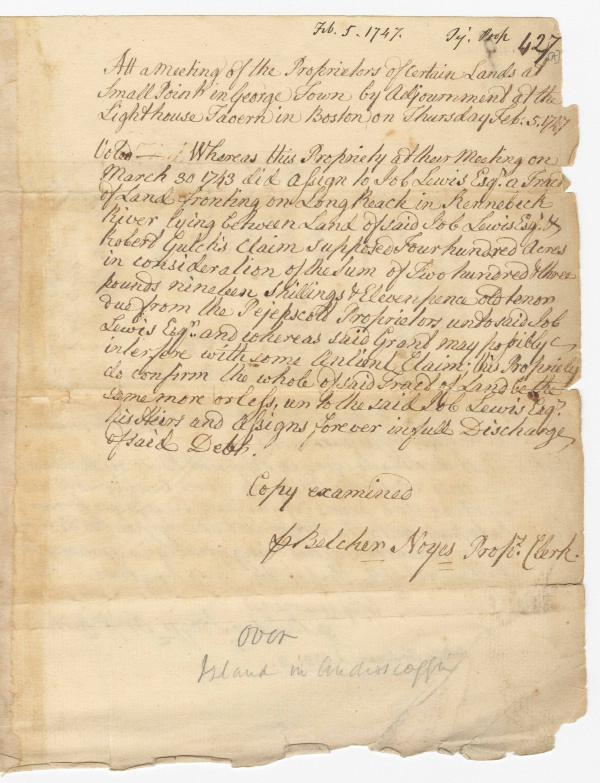 Feb. 5. 1747. Pej. Prop 427
At a meeting of the Proprietors of Certain Lands at
Small Point in George Town by Adjournment at the
Lighthouse Tavern in Boston on Thursday Feb. 5. 1747
Voted Whereas this Propriety at their Meeting on
March 30 1743 did assign to Job Lewis Esqr. a Tract
of Land fronting on Long Reach in Kennebeck
River lying between Land of said Job Lewis Esqr. &
Robert Gutch's Claim supposed four hundred acres
in consideration of the Sum of Two hundred & three
pounds nineteen shillings & Eleven pence old tenor
due from the Pejepscott Proprietors unto said Job
Lewis Esqr. and whereas said Grant may possibly
interfere with some Antient Claim; this Propriety
do confirm the whole of said Tract of Land be the
same more or less, unto the said Job Lewis Esqr.
his Heirs and assigns forever in full Discharge
of said Debt.
Copy examined
Belcher Noyes Propr. Clerk.
Over
Island in Androscoggin